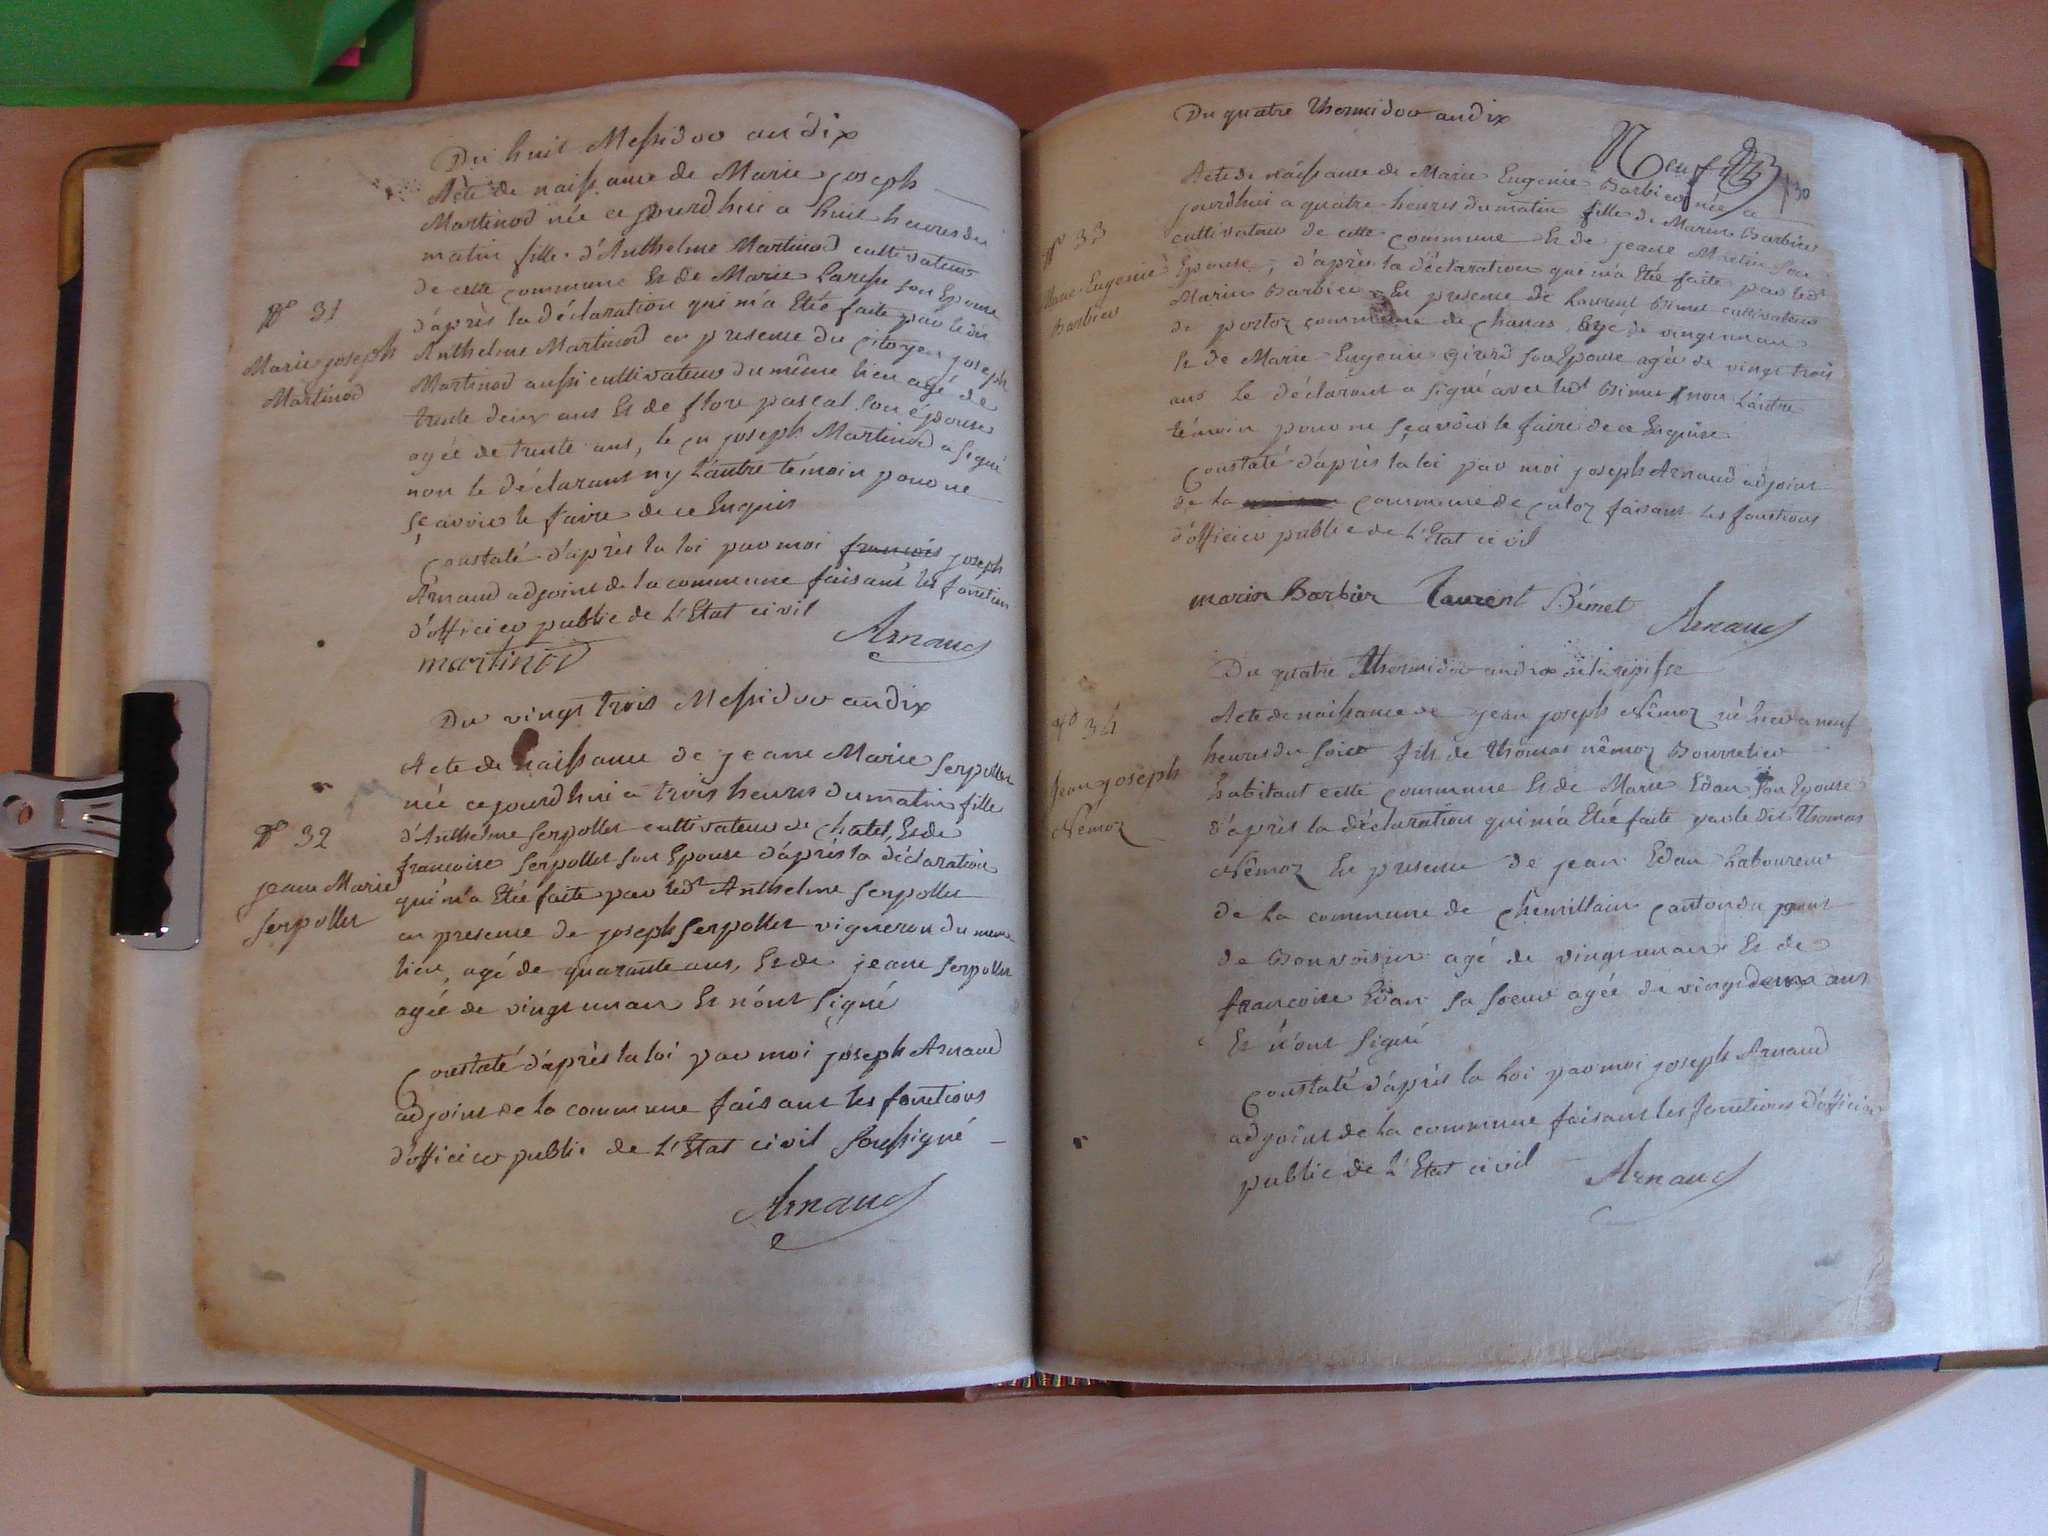 Du huit Messidor an dix
Acte de naissance de Marie joseph
Martinod née ce jourdhui a huit heures du
matin fille d'Anthelme Martinod cultivateur
de cette commune Et de Marie son Epouse
d'après la déclaration qui m'a Eté faite par le dit
Anthelme Martinod en presence du Citoyen joseph
Martinod aussi cultivateur du même lieu agé de
trente deux ans Et de flore pascal son épouse
agée de trente ans, le joseph Martinod a signé
non le déclarant ny L'autre témoin pour ne
sçavoir le faire de ce Enquis
Constaté d'après la loi par moi françois joseph
Arnaud adjoint de la commune faisant les fonction
d'officier public de L'Etat civil
Arnaud
martinod
N° 31
Marie joseph
Martinod
Du vingt trois Messidor an dix
Acte de naissance de jeane Marie Serpollet
née ce jourdhui a trois heures du matin fille
d'Anthelme Serpollet cultivateur de Chatel, Et de
francoise Serpollet son Epouse d'après la déclaration
qui m'a Eté faite par led.t Anthelme Serpollet
en presence de joseph Serpollet vigneron du meme
lieu, agé de quarante ans, Et de jeane Serpollet
agée de vingt un an Et n'ont signé
Constaté d'après la loi par moi joseph Arnaud
adjoint de la commune faisant les fonctions
d'officier public de L'Etat civil soussigné
Arnaud
N° 32
jeane Marie
Serpollet
Du quatre Thermidor an dix
Neuf
30
Acte de naissance de Marie Eugenie Barbier née a
jourdhui a quatre heures du matin fille de Marin Barbier
cultivateur de cette commune Et de jeane Martin son
Epouse, d'après la déclaration qui m'a Eté faite par led.t
Marin Barbier En presence de Laurent Bimet cultivateur
de commune de agé de vingt un an
Et de Marie Eugenie girerd son Epouse agée de vingt trois
ans Le déclarant a signé avec led.t Bimet non L'autre
témoin pour ne sçavoir le faire de ce Enquise
Constaté d'après la loi par moi joseph Arnaud adjoint
de la commune de culoz faisant les fonctions
d'officier public de L'Etat civil
marin Barbier Laurent Bimet
Arnaud
N° 33
Marie Eugenie
Barbier
Du quatre Thermidor an dix
Acte de naissance de jean joseph Nêmoz né hier a neuf
heures du soir fils de Thomas nêmoz Bourrelier
habitant cette commune Et de Marie Edan son Epouse
d'après la déclaration qui m'a Eté faite par le dit Thomas
Nêmoz En presence de jean Edan Laboureur
de la commune de Chemillain canton du pont
de Bonvoisin agé de vingt un an Et de
francoise Edan sa soeur agée de vingt deux ans
Et n'ont signé
Constaté d'après la Loi par moi joseph Arnaud
adjoint de la commune faisant les fonctions d'officier
public de L'Etat civil
Arnaud
N° 34
Jean joseph
Nêmoz